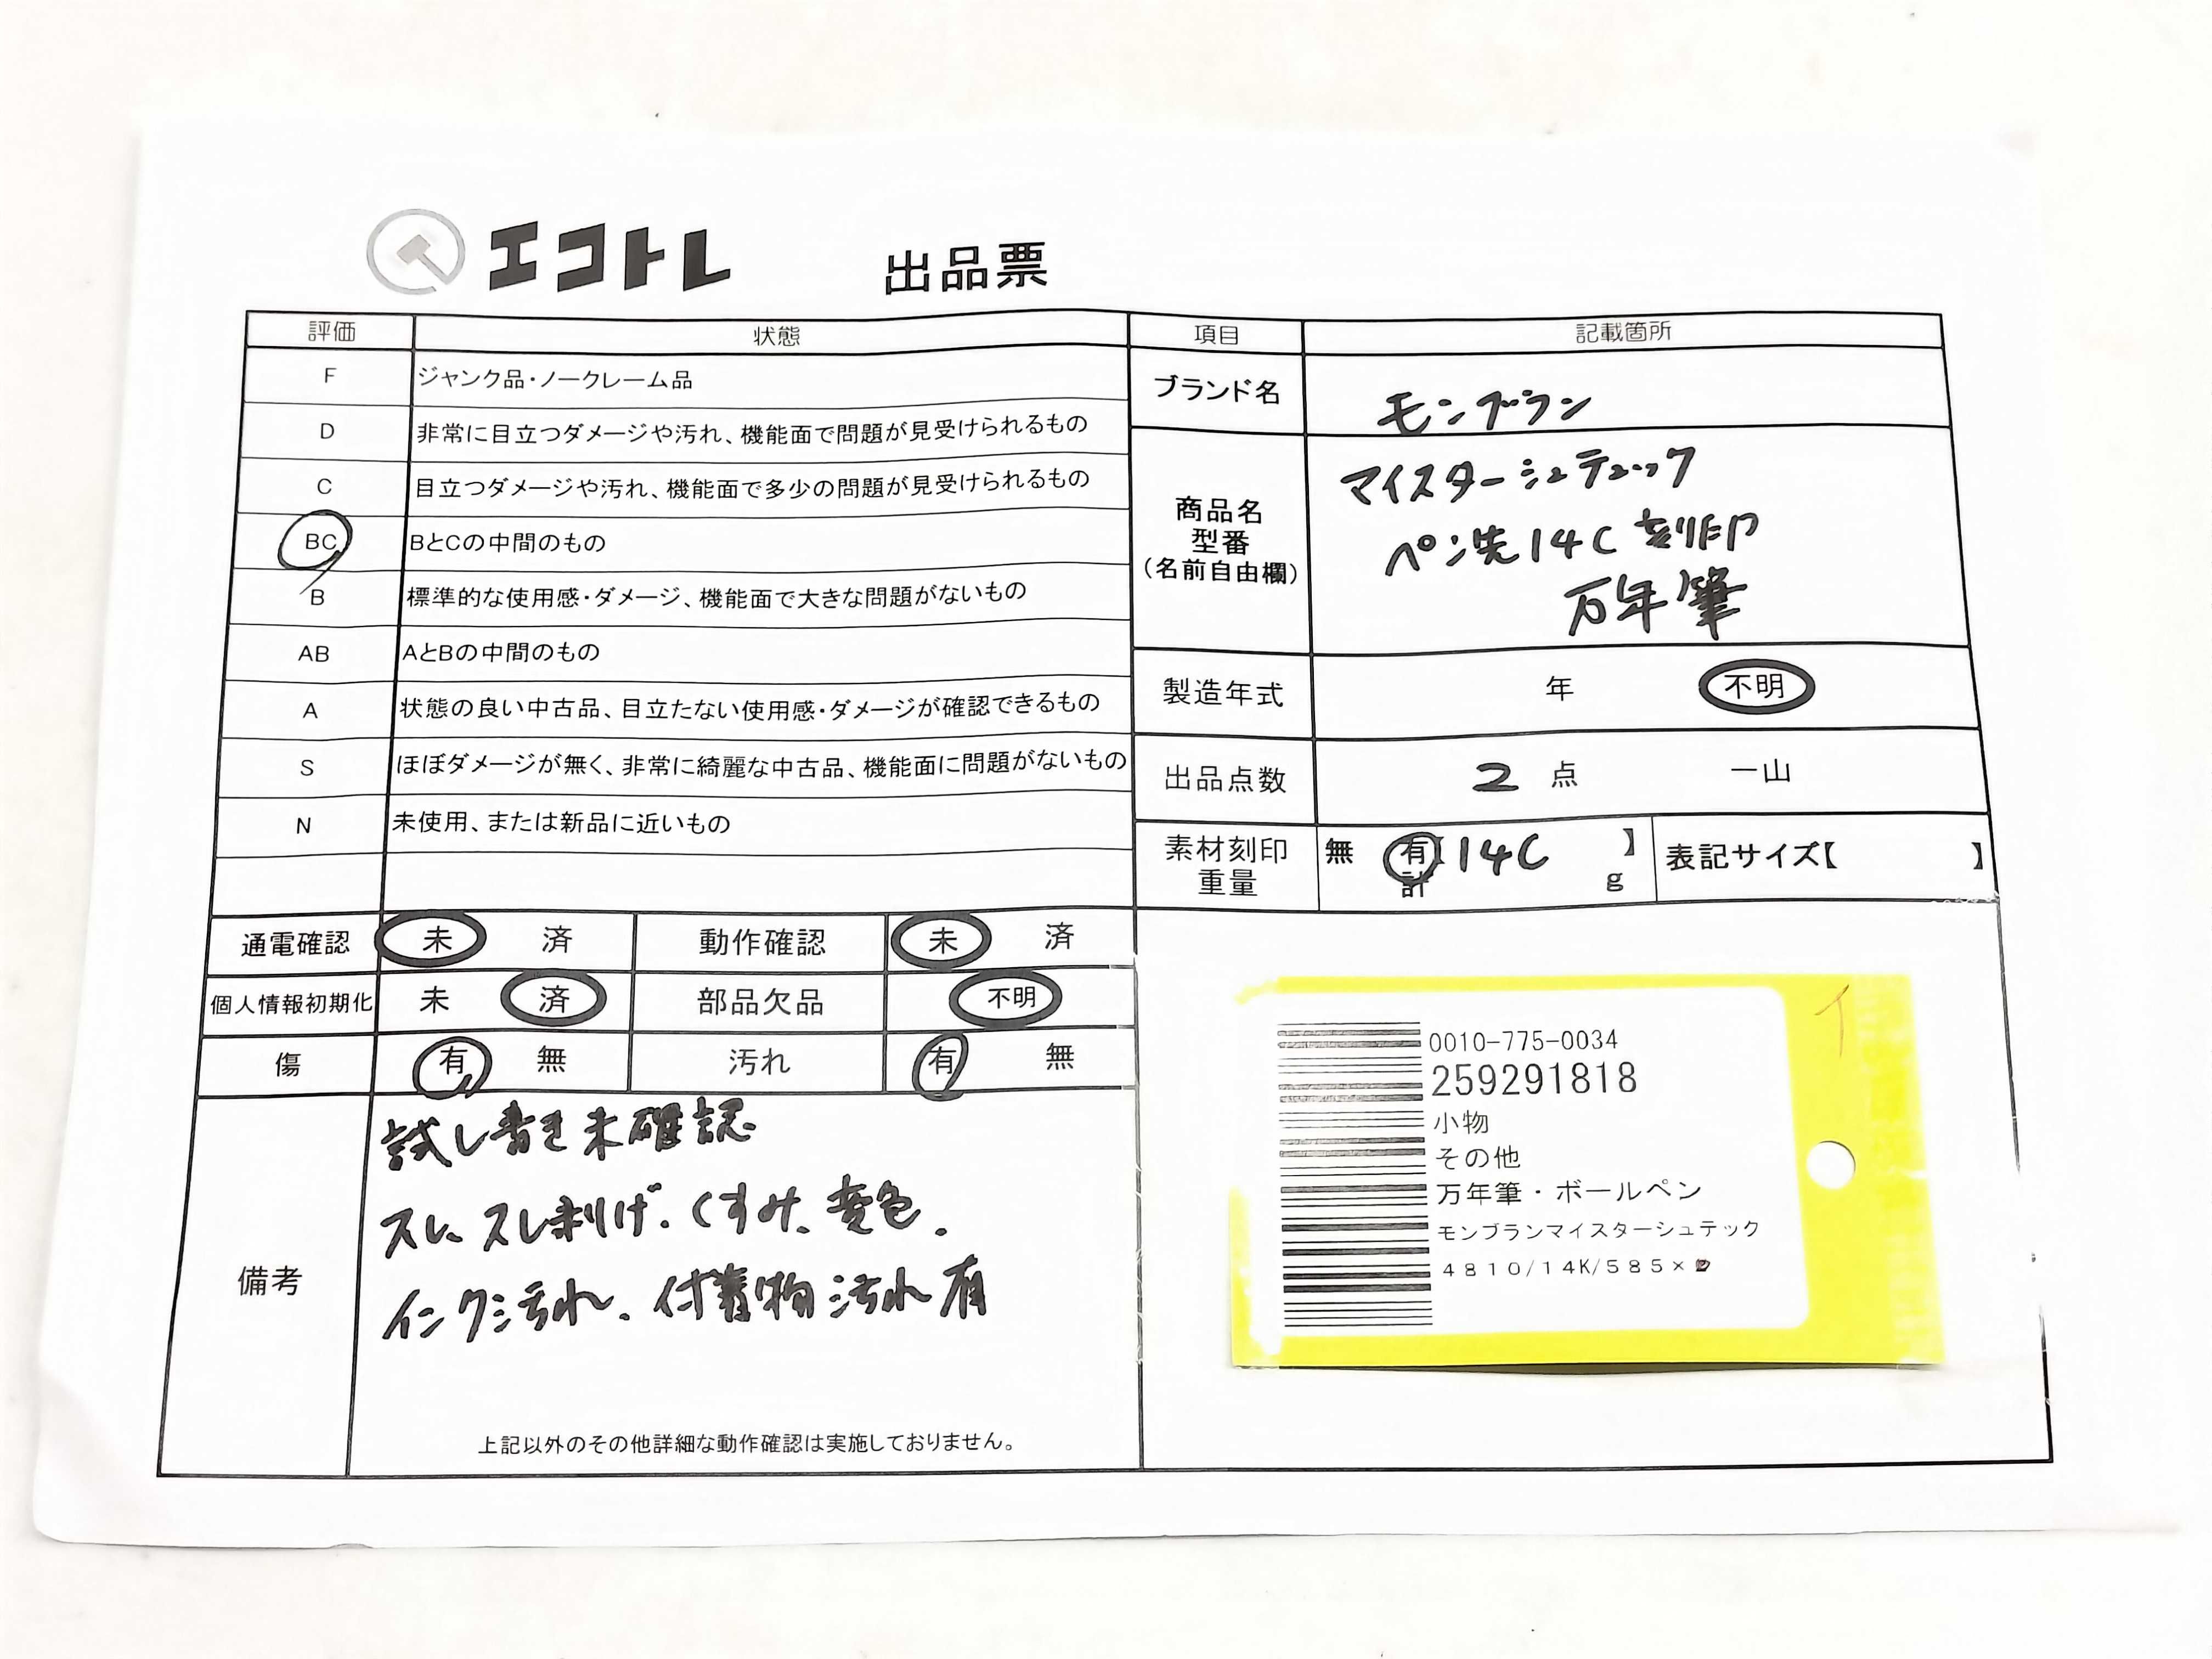 エコトレ 出品票
評価 状態
F ジャンク品・ノークレーム品
D 非常に目立つダメージや汚れ、機能面で問題が見受けられるもの
C 目立つダメージや汚れ、機能面で多少の問題が見受けられるもの
BC BとCの中間のもの
B 標準的な使用感・ダメージ、機能面で大きな問題がないもの
AB AとBの中間のもの
A 状態の良い中古品、目立たない使用感・ダメージが確認できるもの
S ほぼダメージが無く、非常に綺麗な中古品、機能面に問題がないもの
N 未使用、または新品に近いもの
通電確認 未 済 動作確認 未 済
個人情報初期化 未 済 部品欠品 不明
傷 有 無 汚れ 有 無
備考
試し書き未確認
スレ、スレ剥げ、くすみ、変色、
インク汚れ、付着物汚れ有
上記以外のその他詳細な動作確認は実施しておりません。
項目 記載箇所
ブランド名 モンブラン
商品名
型番
(名前自由欄)
マイスターシュテュック
ペン先14C 刻印
万年筆
製造年式 年 不明
出品点数 2 点 一山
素材刻印
重量
無 有【14C 】
計 g
表記サイズ【 】
イ
0010-775-0034
259291818
小物
その他
万年筆・ボールペン
モンブランマイスターシュテック
4810/14K/585×